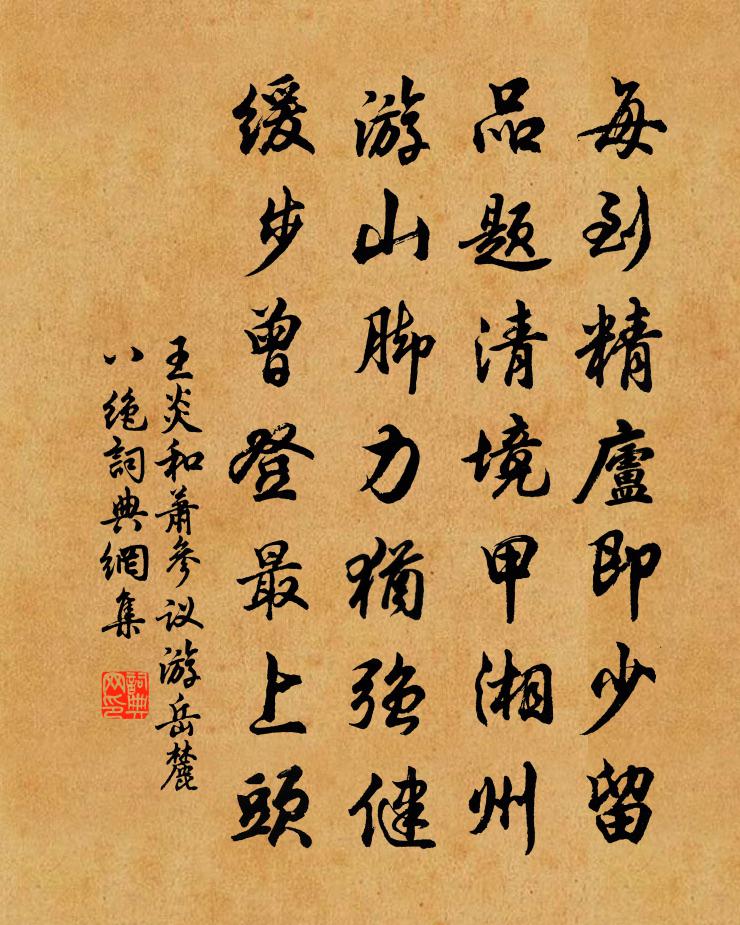 每到精廬即少留
品题清境甲湘州
游山脚力犹強健
缓步曾登最上頭
王炎和萧参议游岳麓
八绝詞典網集
詞典网印